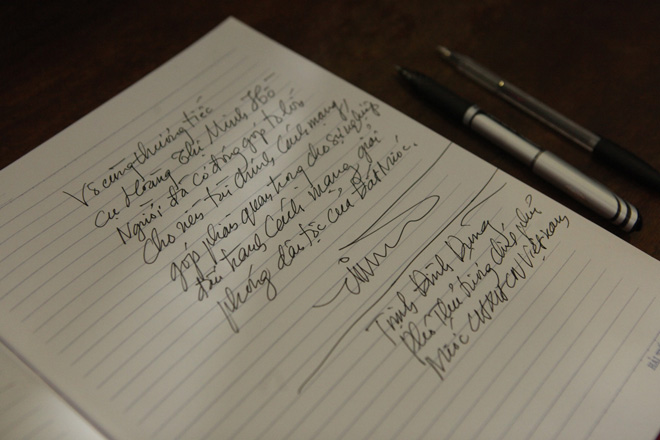 Vô cùng thương tiếc
cụ Hoàng Thị Minh Hồ
Người đã có đóng góp to lớn
cho nền tài chính Cách mạng,
góp phần quan trọng cho sự nghiệp
đấu tranh Cách mạng giải
phóng dân tộc của Đất Nước.
Trịnh Đình Dũng
Phó Thủ tướng Chính phủ
Nước CHXHCN Việt Nam